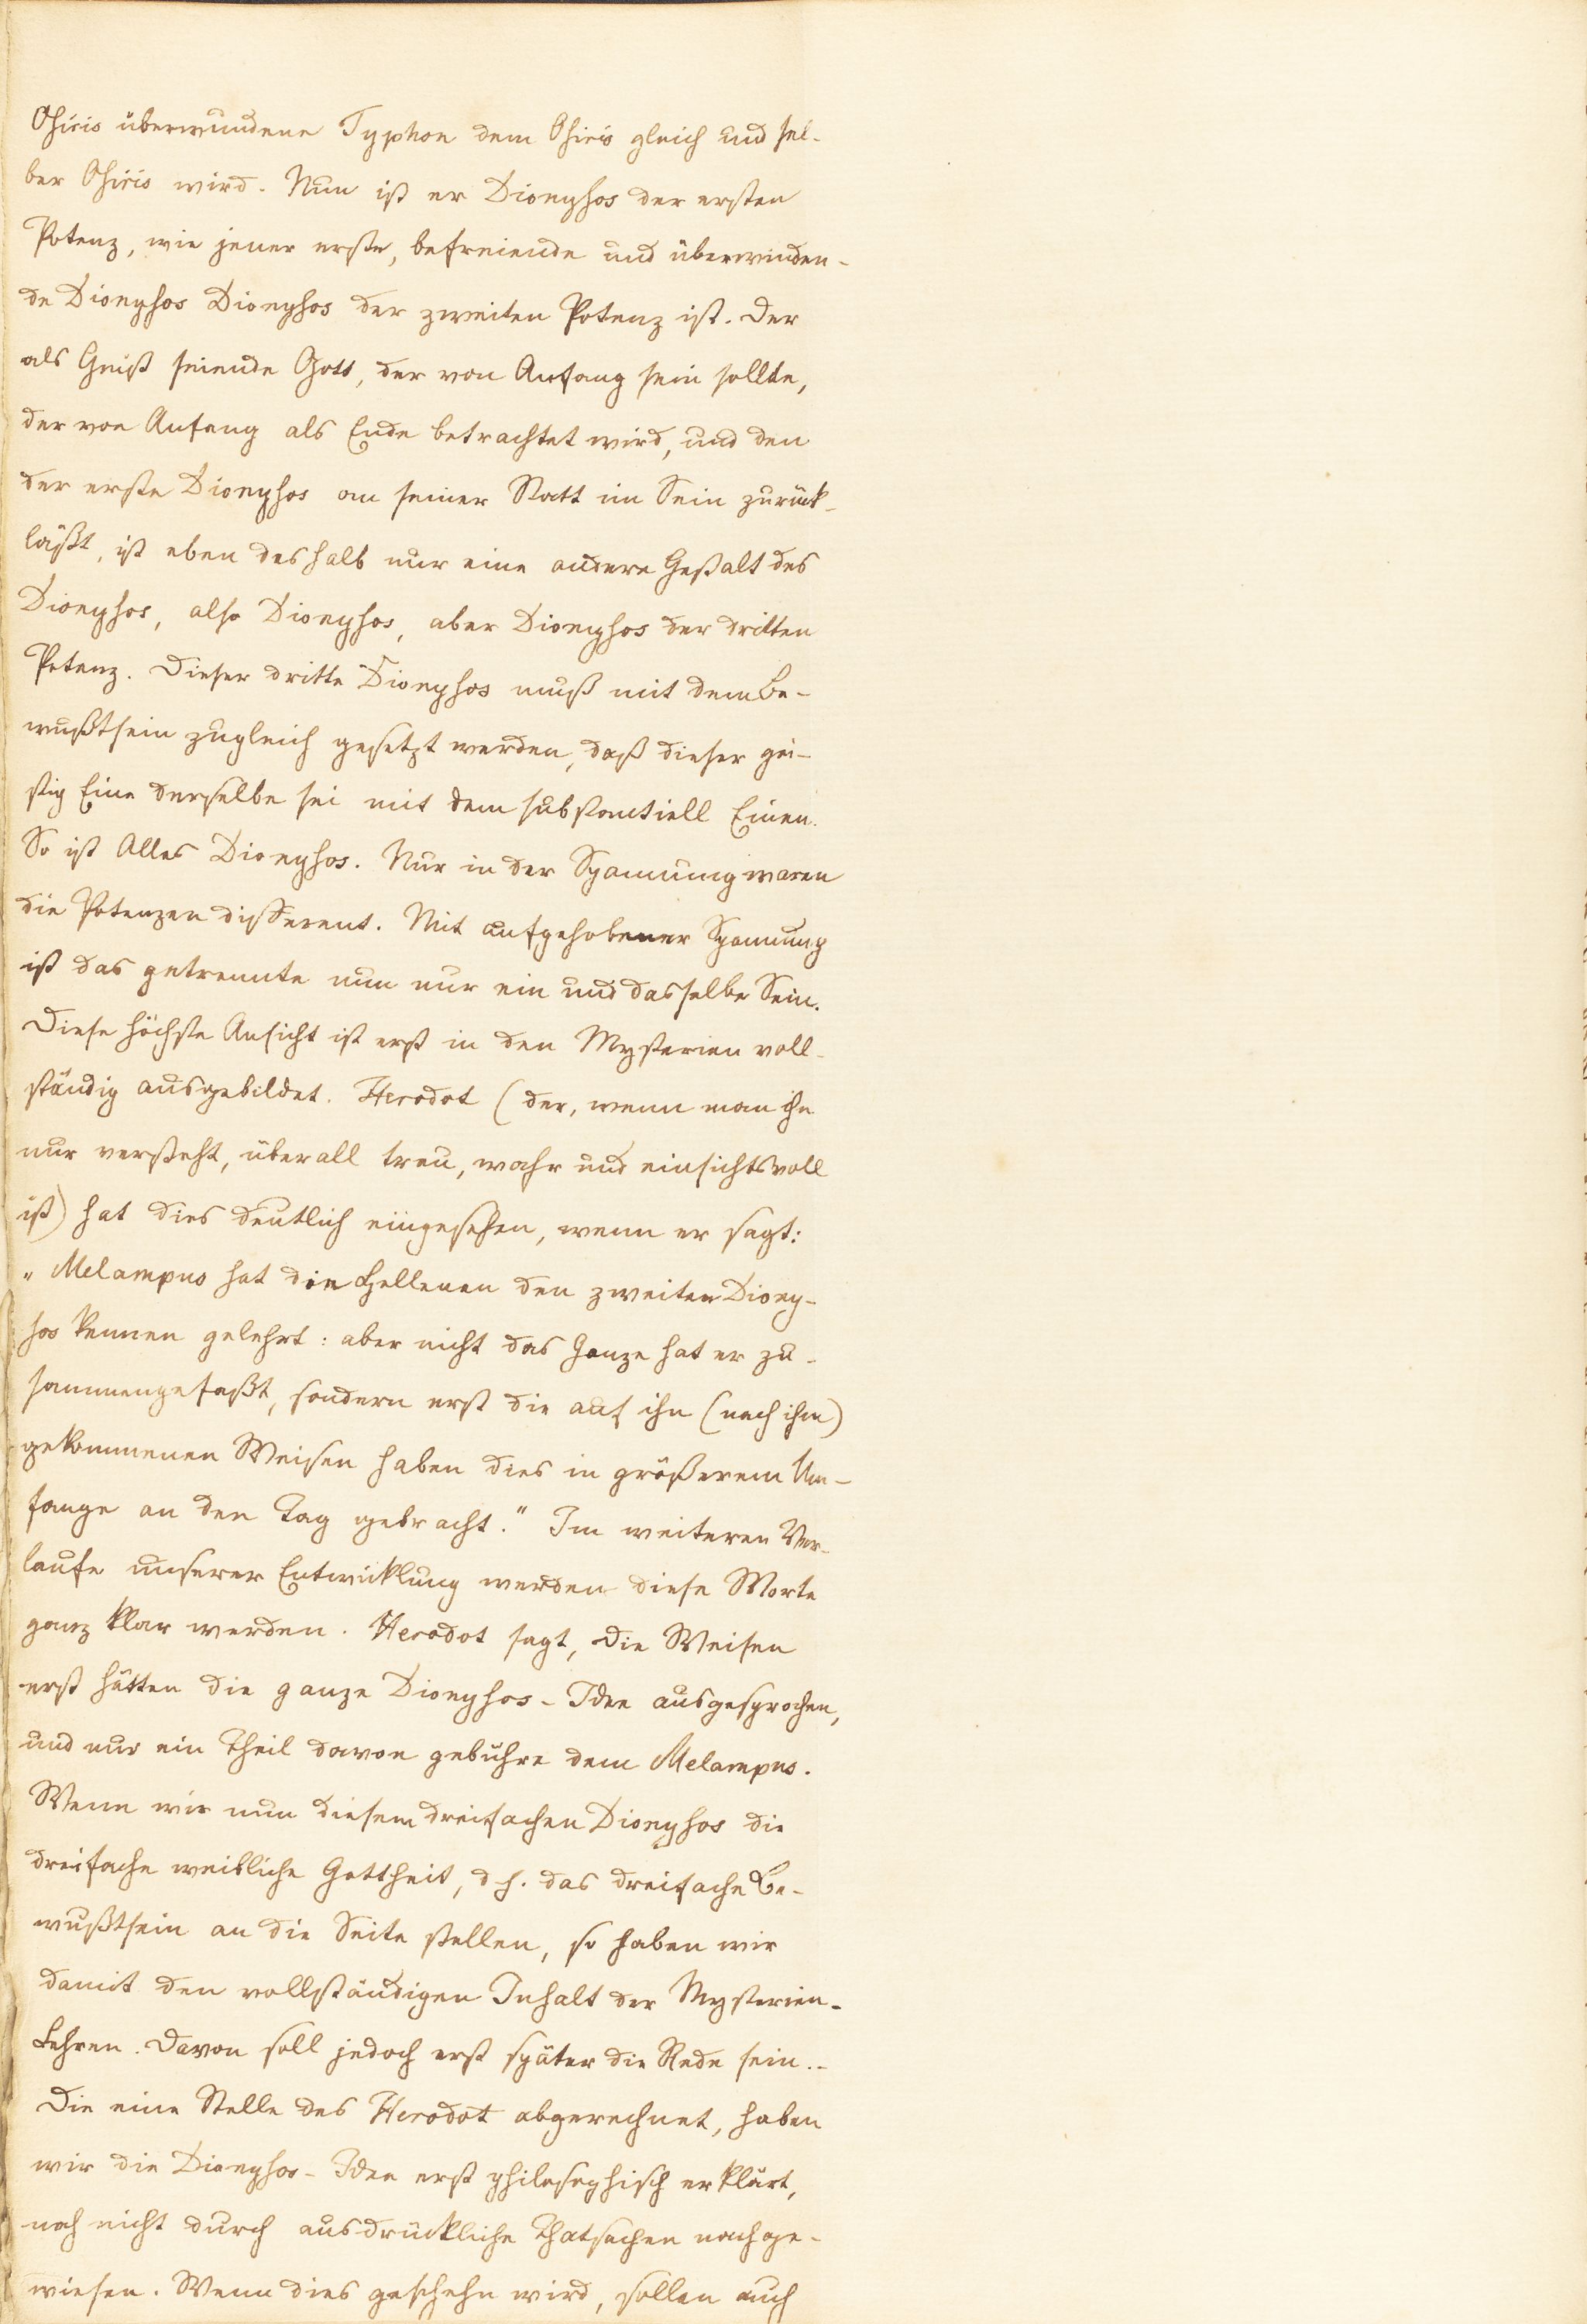 Osiris überwundene Typhon dem Osiris gleich und sel-
ber Osiris wird. Nun ist er Dionysos der ersten
Potenz, wie jener erste, befreiende und überwinden-
de Dionysos Dionysos der zweiten Potenz ist. Der
als Geist seiende Gott, der von Anfang sein sollte,
der von Anfang als Ende betrachtet wird, und den
der erste Dionysos an seiner Statt im Sein zurück-
läßt, ist eben deshalb nur eine andere Gestalt des
Dionysos, also Dionysos, aber Dionysos der dritten
Potenz. Dieser dritte Dionysos muß mit dem Be-
wußtsein zugleich gesetzt werden, daß dieser gei-
stig Eine derselbe sei mit dem substantiell Einen.
So ist Alles Dionysos. Nur in der Spannung waren
die Potenzen different. Mit aufgehobener Spannung
ist das getrennte nun nur ein und dasselbe Sein.
Diese höchste Ansicht ist erst in den Mysterien voll-
ständig ausgebildet. Herodot (der, wenn man ihn
nur versteht, überall treu, wahr und einsichtsvoll
ist) hat dies deutlich eingesehen, wenn er sagt:
„Melampus hat die Hellenen den zweiten Diony-
sos kennen gelehrt: aber nicht das Ganze hat er zu-
sammengefaßt, sondern erst die auf ihn (nach ihm)
gekommenen Weisen haben dies in größerem Um-
fange an den Tag gebracht." Im weiteren Ver-
laufe unserer Entwicklung werden diese Worte
ganz klar werden. Herodot sagt, die Weisen
erst hätten die ganze Dionysos-Idee ausgesprochen,
und nur ein Theil davon gebühre dem Melampus.
Wenn wir nun diesem dreifachen Dionysos die
dreifache weibliche Gottheit, d h. das dreifache Be-
wußtsein an die Seite stellen, so haben wir
damit den vollständigen Inhalt der Mysterien-
Lehren. Davon soll jedoch erst später die Rede sein. -
Die eine Stelle des Herodot abgerechnet, haben
wir die Dionysos-Idee erst philosophisch erklärt,
noch nicht durch ausdrückliche Thatsachen nachge-
wiesen. Wenn dies geschehn wird, sollen auch